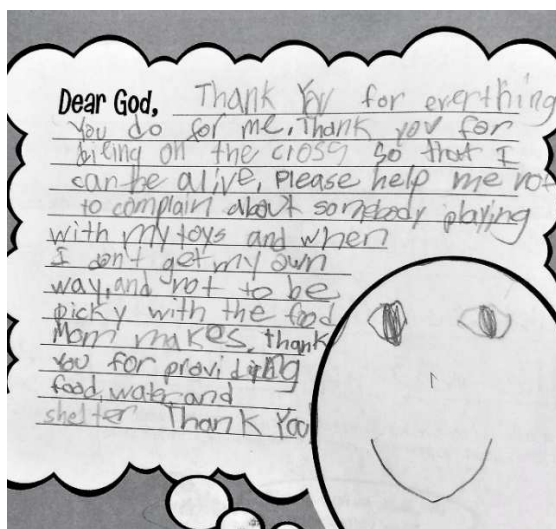 Dear God, Thank You for everthing
You do for me. Thank you for
biling on the cross so that I
can be alive, Please help me not
to complain about somebody playing
with my toys and when
I don't get my own
way, and not to be
picky with the food
Mom makes. thank
You for providing
food, water and
shelter Thank You